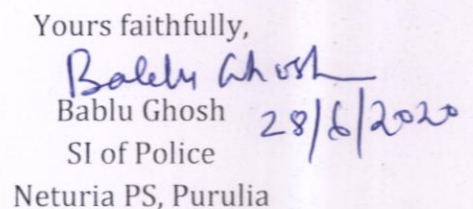 Yours faithfully,
Bablu Ghosh
Bablu Ghosh
28/6/2020
SI of Police
Neturia PS, Purulia